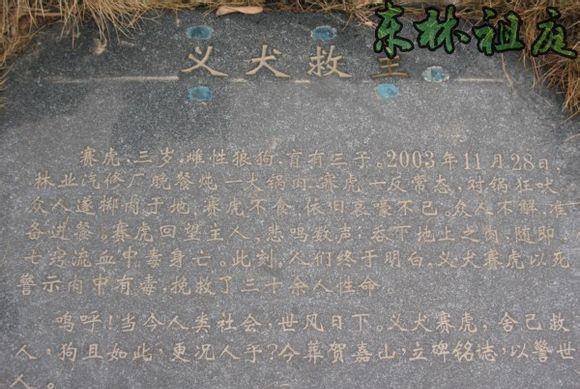 东林祖庭
义犬救主
赛虎,三岁,雌性狼狗,育有三子。2003年11月28日,
林业汽修厂晚餐炖一大锅肉,赛虎一反常态,对锅狂吠,
众人遂掷肉于地,赛虎不食,依旧哀嚎不已。众人不解,准
备进餐,赛虎回望主人,悲鸣数声,吞下地上之肉,随即
七孔流血中毒身亡。此刻,人们终于明白,义犬赛虎以死
警示肉中有毒,挽救了三十余人性命。
呜呼!当今人类社会,世风日下。义犬赛虎,舍己救
人,狗且如此,更况人乎?今葬贺嘉山,立碑铭志,以警世
人。